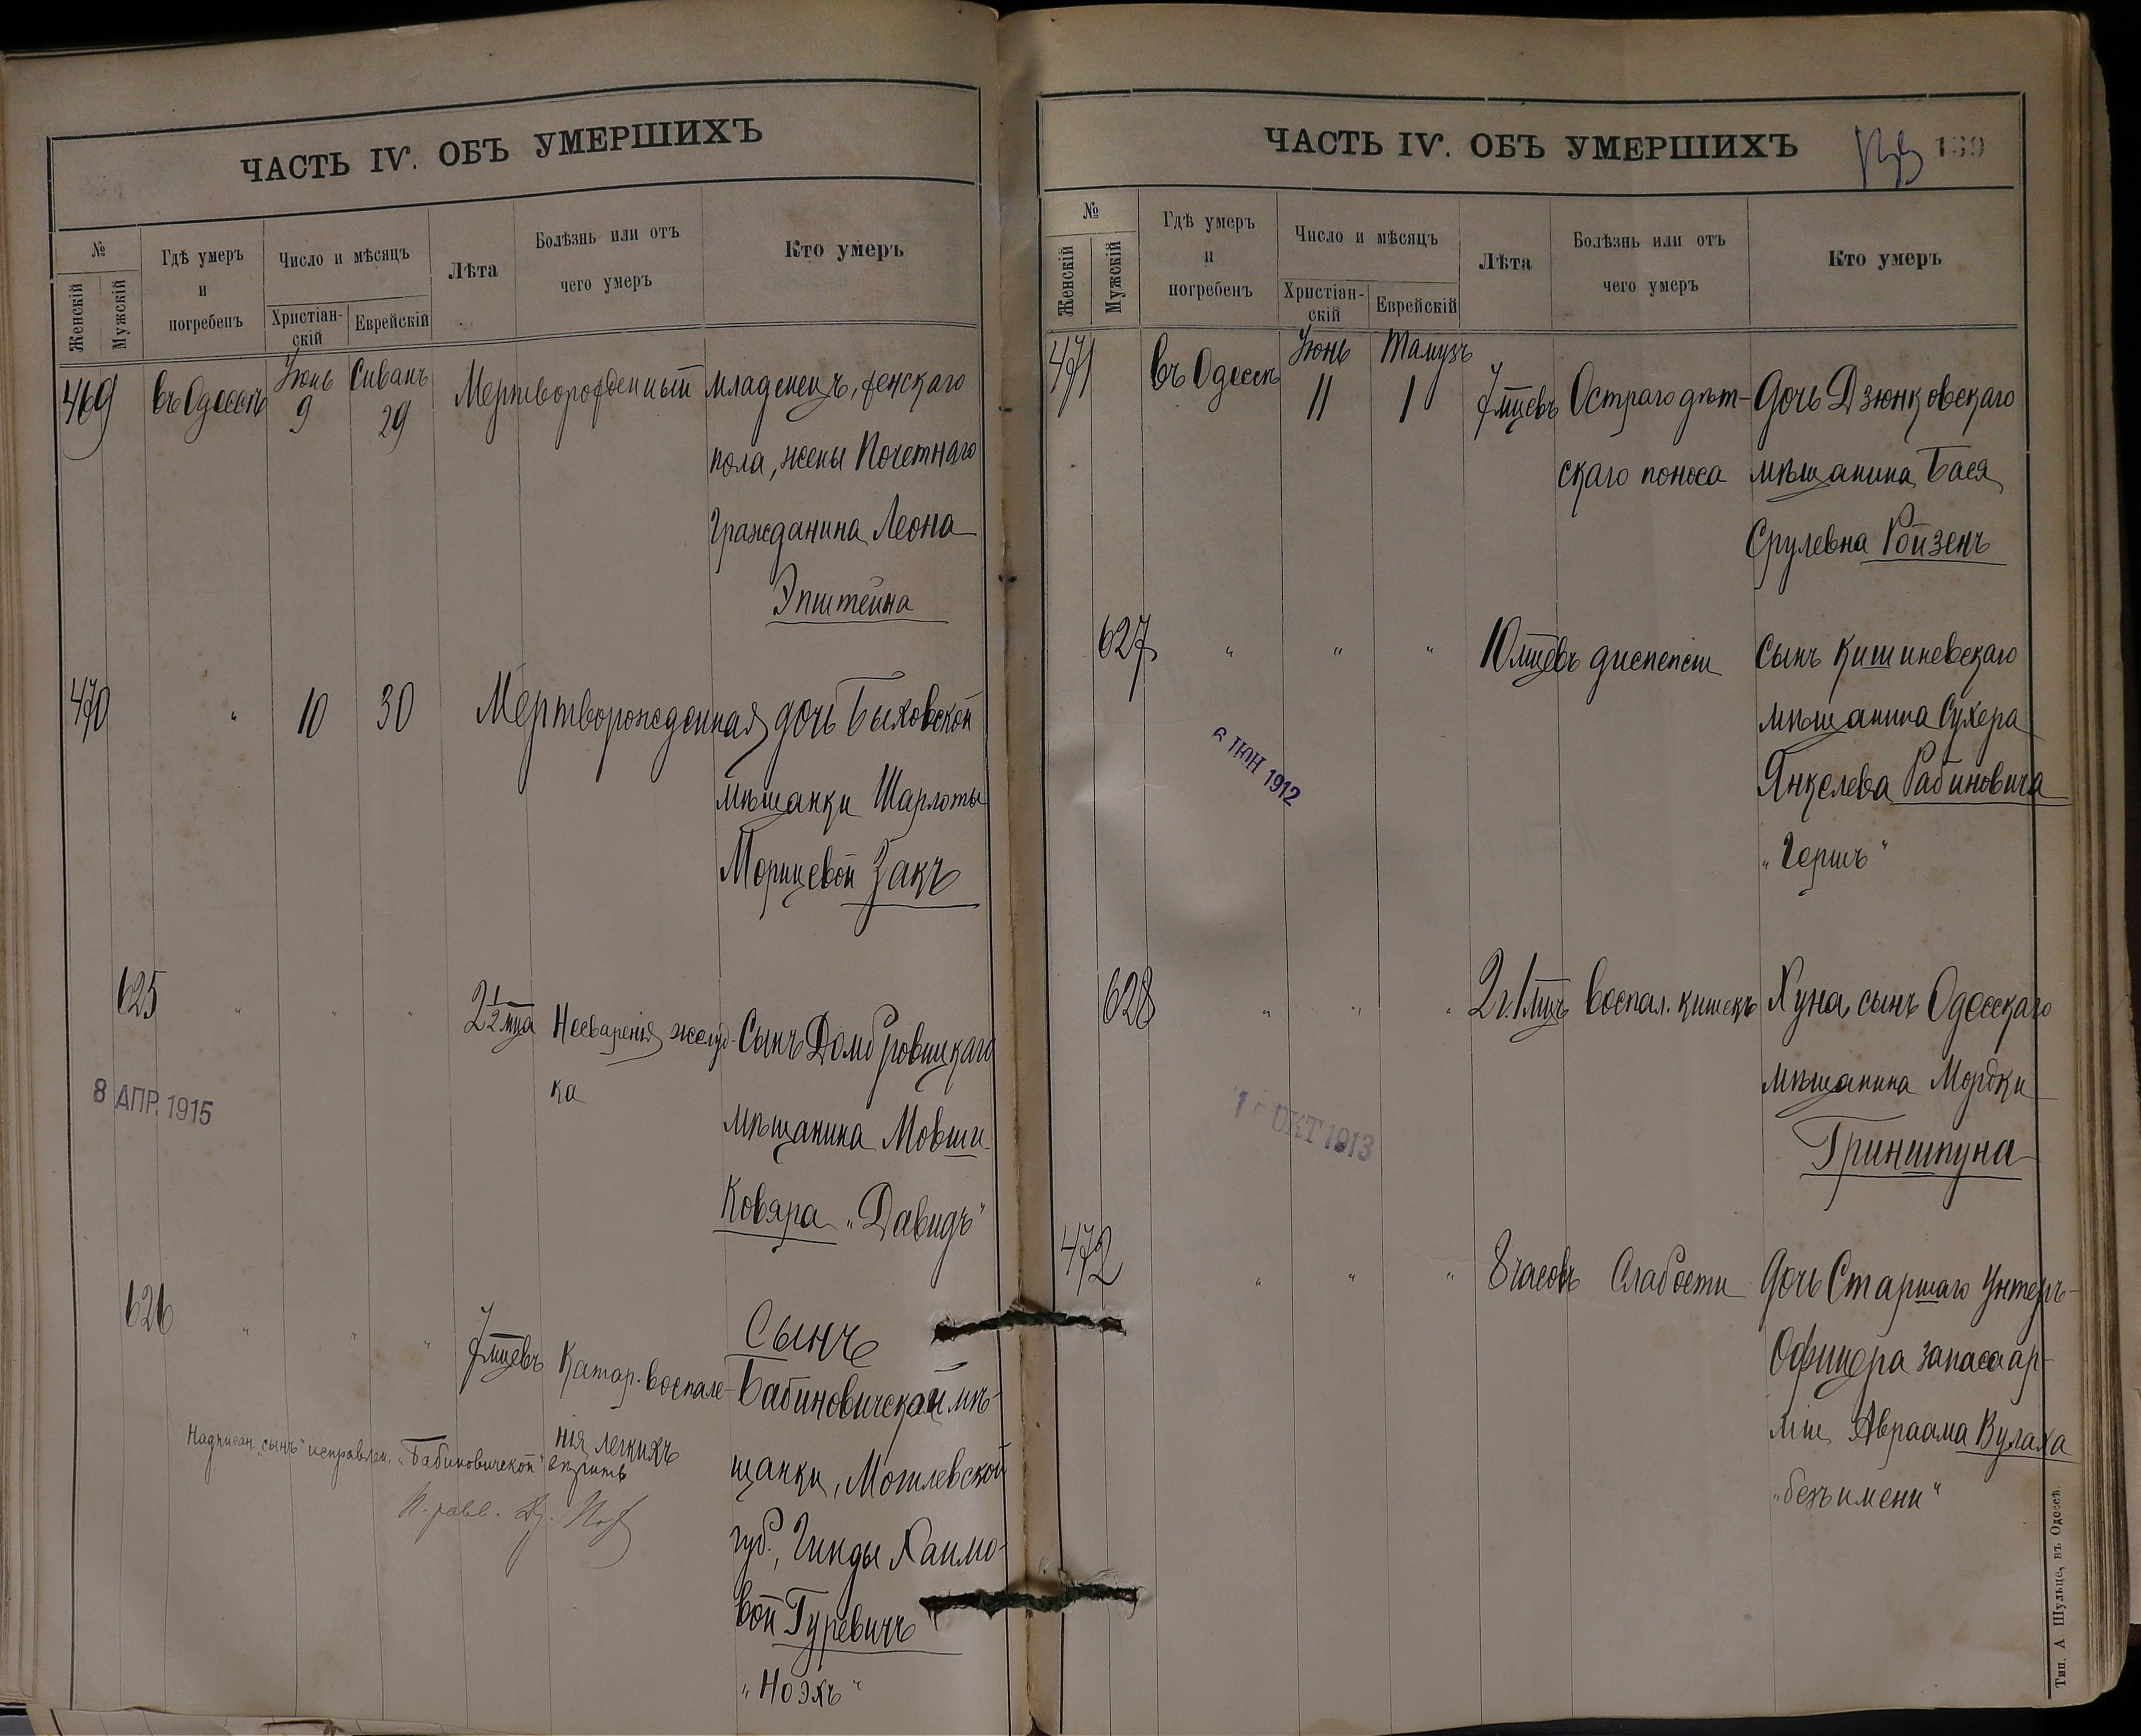 ЧАСТЬ IV. ОБЪ УМЕРШИХЪ
№
Женскій
Мужскій
Гдѣ умеръ
и
погребенъ
Число и мѣсяцъ
Христіан-
скій
Еврейскій
Лѣта
Болѣзнь или отъ
чего умеръ
Кто умеръ
469 въ Одессѣ Іюнь 9 Сиванъ 29 Мертворожденный младенецъ, женскаго
пола, жены Почетнаго
Гражданина Леона
Эпштейна
470 " 10 30 Мертворожденная дочь Быховской
мѣщанки Шарлоты
Морицевой Закъ
625 " " " 2 1/2 мца Несваренія желуд- Сынъ Домбровицкаго
ка
мѣщанина Мовши
Ковяра „Давидъ"
8 АПР. 1915
626 " " " 7 мцевъ Катар. воспале-
нія легкихъ
Сынъ
Бабиновичской мѣ-
щанки, Могилевской
губ., Гинды Хаимо-
вой Гуревичъ
„Ноэхъ"
Надписан. „сынъ" исправлен. „Бабиновичской"
ЧАСТЬ IV. ОБЪ УМЕРШИХЪ
139
№
Женскій
Мужскій
Гдѣ умеръ
и
погребенъ
Число и мѣсяцъ
Христіан-
скій
Еврейскій
Лѣта
Болѣзнь или отъ
чего умеръ
Кто умеръ
471 въ Одессѣ Іюнь 11 Тамузъ 1 7 мцевъ Остраго дѣт- Дочь Дзюнковскаго
скаго поноса мѣщанина Бася
Срулевна Ройзенъ
627 " " " 10 мцевъ диспепсіи Сынъ Кишиневскаго
мѣщанина Сухера
Янкелева Рабиновича
„Гершъ"
6 ІЮН 1912
628 " " " 2 г. 1 мцъ Воспал. кишекъ Хуна сынъ Одесскаго
мѣщанина Мордки
Гриншпуна
ОКТ 1913
472 " " " 8 часовъ Слабости Дочь Старшаго Унтеръ-
Офицера запаса ар-
міи Авраама Вулаха
„безъ имени"
Тип. А Шульце, въ Одессѣ.